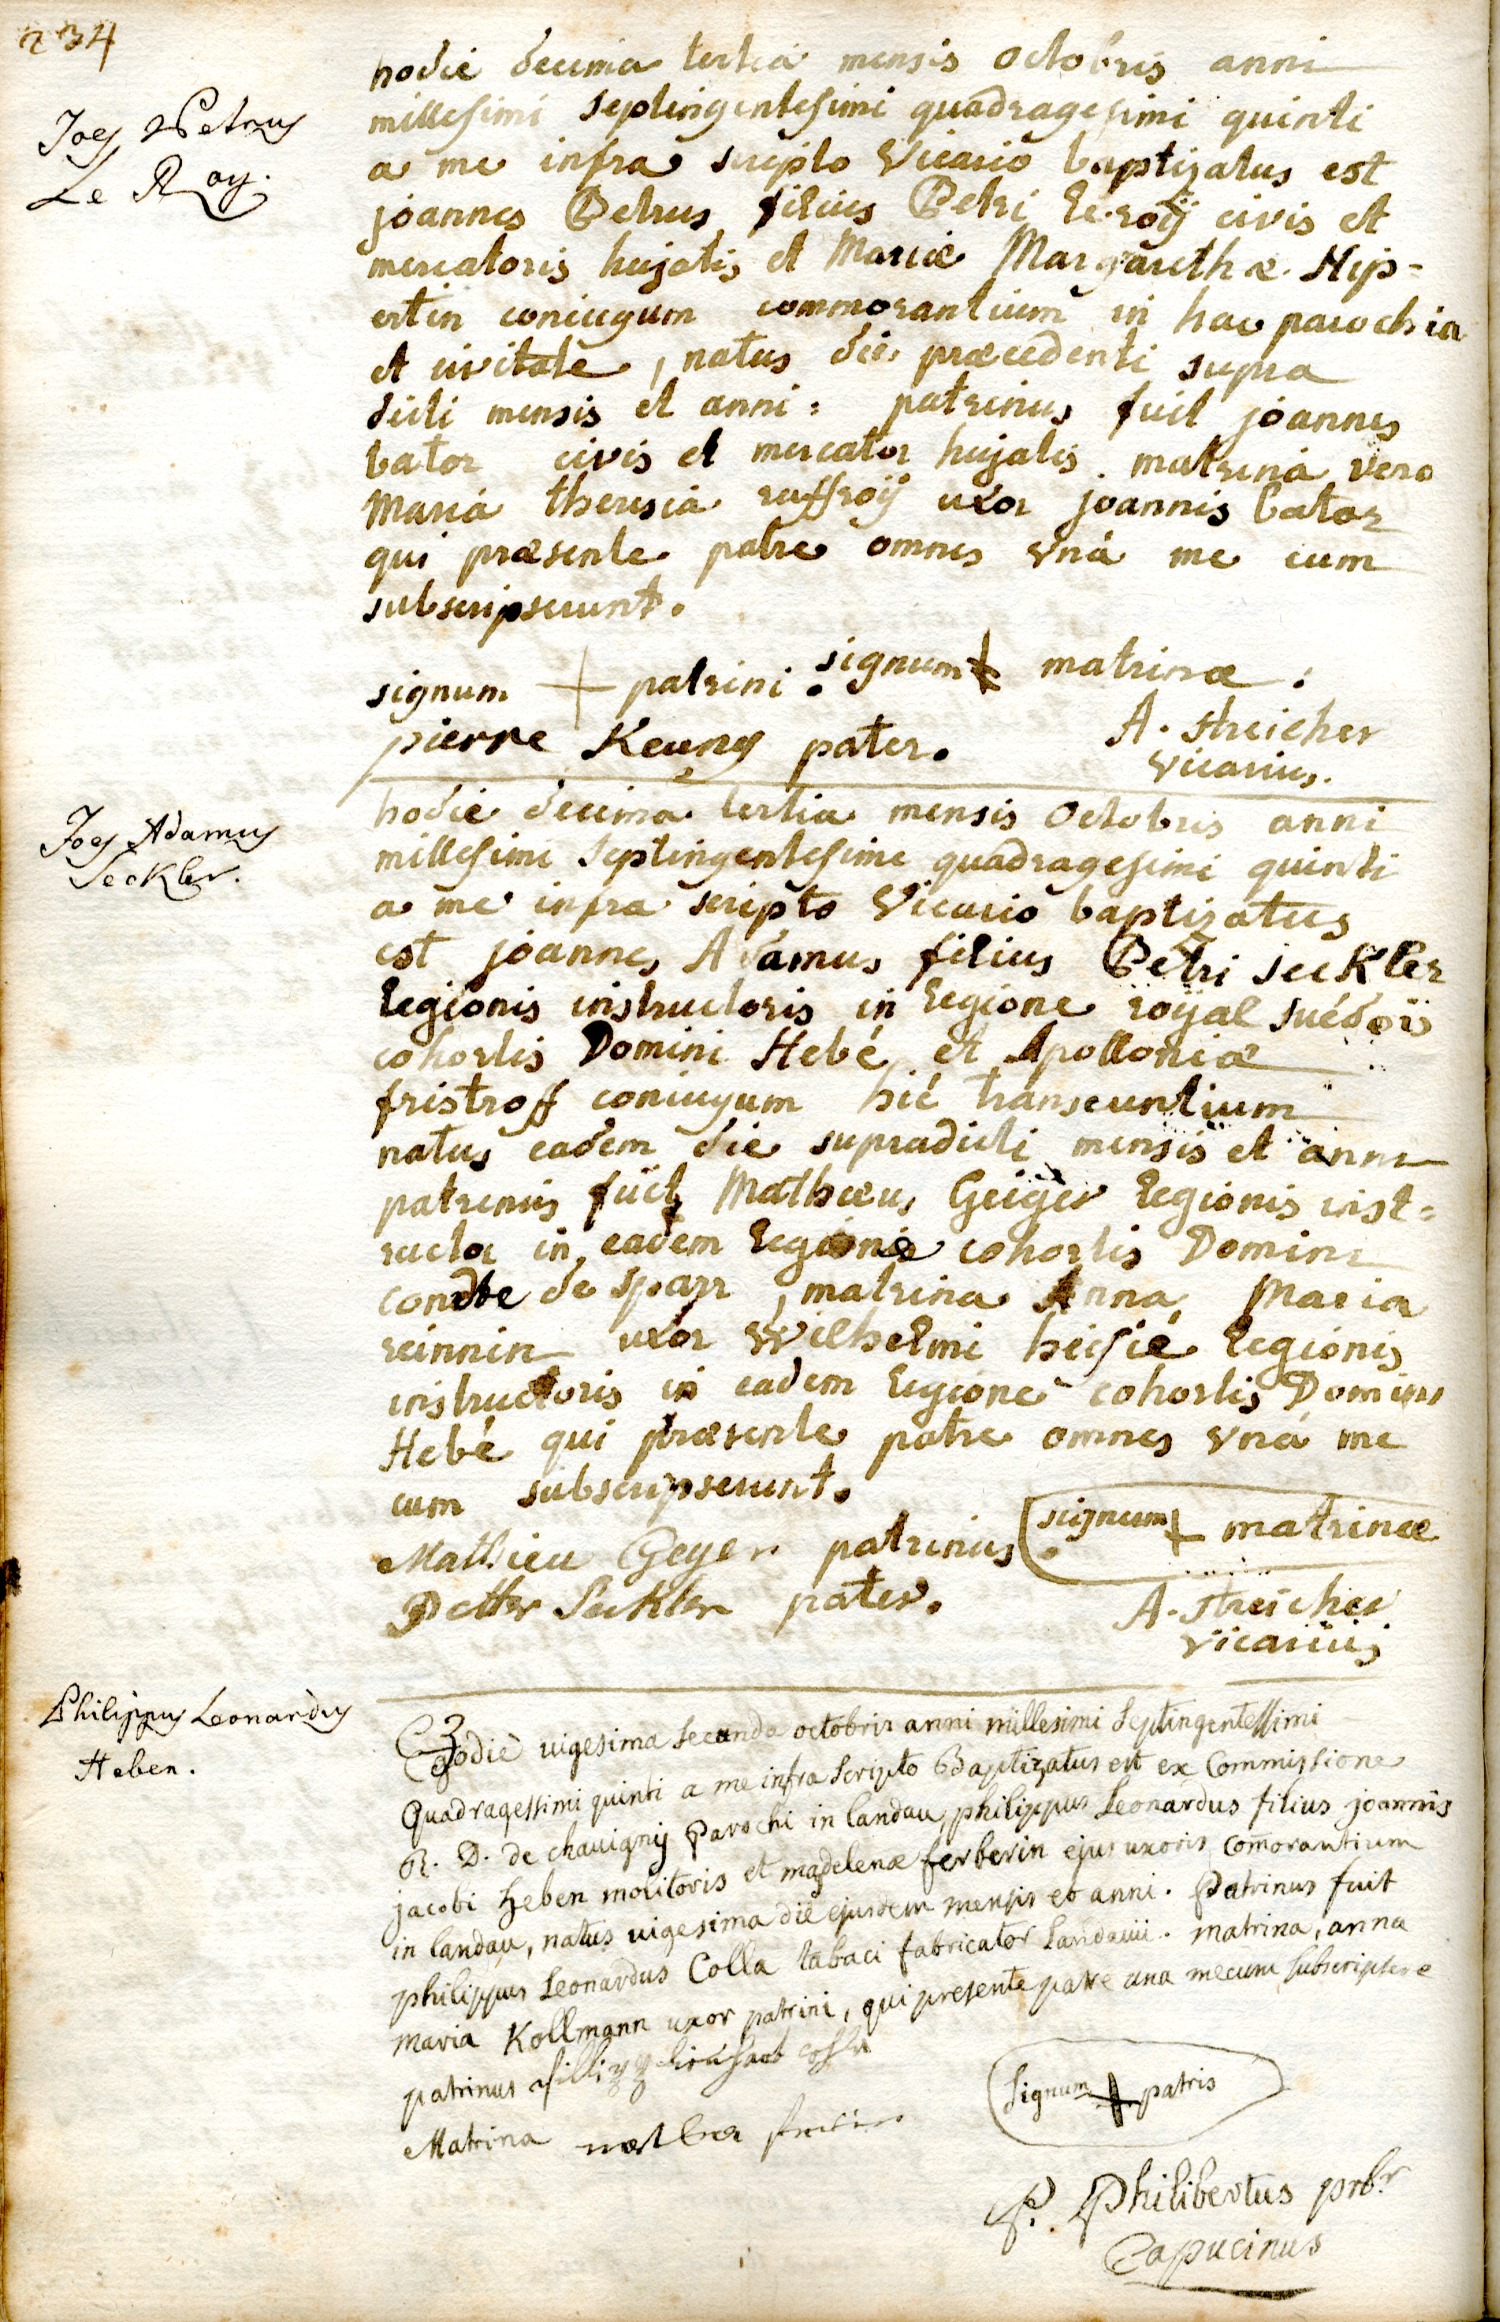 234
Joes Petrus
Le Roy.
hodie decima tertia mensis Octobris anni
millesimi septingentesimi quadragesimi quinti
a me infra scripto Vicario baptizatus est
joannes Petrus filius Petri le roÿ civis et
mercatoris hujatis et Mariæ Margarethæ Hip-
ertin coniugum commorantium in hac parochia
et civitate, natus die præcedenti supra
dicti mensis et anni: patrinus fuit joannes
bator civis et mercator hujatis. matrina vero
Maria theresia raffroÿ uxor joannis bator
qui præsente patre omnes vna me cum
subscripserunt.
signum + patrini. signum + matrinæ.
pierre pater. A. Streicher
vicarius.
Joes Adamus
Seckler.
hodie decima tertia mensis Octobris anni
millesimi septingentesimi quadragesimi quinti
a me infra scripto Vicario baptizatus
est joannes Adamus filius Petri Seckler
legionis instructoris in legione roÿal suédois
cohortis Domini Hebé et Apolloniæ
fristroff coniugum hic transeuntium
natus eadem die supradicti mensis et anni
patrinus fuit Mathæus Geiger legionis inst-
ructor in eadem legione cohortis Domini
de sparr, matrina Anna Maria
reinnin uxor Wilhelmi legionis
instructoris in eadem legione cohortis Domini
Hebé qui præsente patre omnes vna me
cum subscripserunt.
Mathieu Geyer patrinus signum + matrinæ
Petter Seckler pater. A. Streicher
vicarius
Philippus Leonardus
Heben.
Hodie vigesima secunda octobris anni millesimi septingentessimi
Quadragessimi quinti a me infra scripto Baptizatus est ex Commissione
R. D. de chauignÿ Parochi in landau, philippus Leonardus filius joannis
jacobi Heben molitoris et magdelenæ ferberin ejus uxoris comorantium
in landau, natus vigesima die ejusdem mensis et anni. Patrinus fuit
philippus Leonardus Colla tabaci fabricator Landavii. matrina, anna
maria Kollmann uxor patrini, qui presente patre una mecum subscripsere
patrinus
Matrina
signum + patris
P. Philibertus prbr
Capucinus